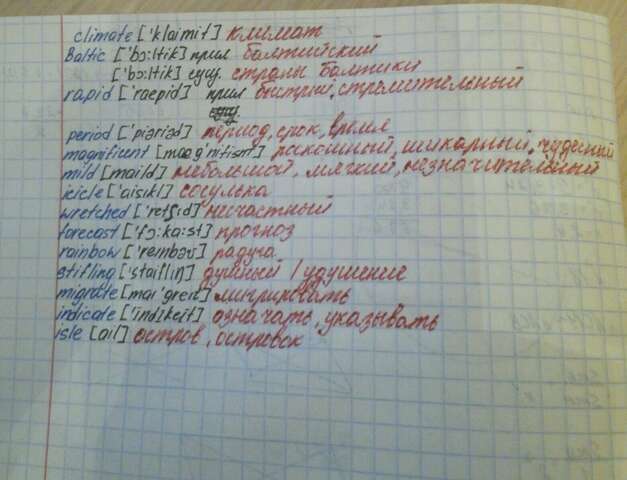 climate ['klaimit] климат
Baltic ['bɔ:ltik] прил балтийский
['bɔ:ltik] сущ. страны Балтики
rapid ['raepid] прил быстрый, стремительный
period ['piəriəd] период, срок, время
magnificent [mæg'nifisnt] роскошный, шикарный, чудесный
mild [maild] небольшой, мягкий, незначительный
icicle ['aisikl] сосулька
wretched ['retʃid] несчастный
forecast ['fɔ:ka:st] прогноз
rainbow ['reinbəʊ] радуга
stifling ['staifliŋ] душный / удушение
migrate [mai'greit] мигрировать
indicate ['indikeit] означать, указывать
isle [ail] остров, островок